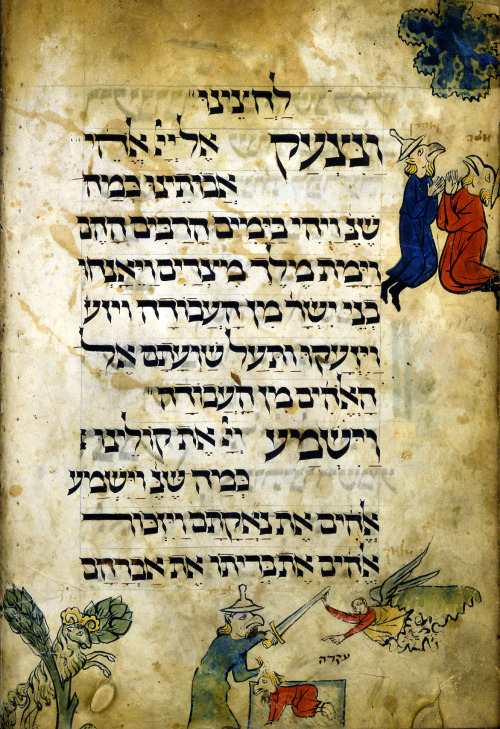 לחצינו
ונצעק אל יי׳ אלהי
אבותינו כמה
שנ׳ ויהי בימים הרבים ההם
וימת מלך מצרים ויאנחו
בני ישר׳ מן העבודה ויזע
ויזעקו ותעל שועתם אל
האלהים מן העבודה
וישמע יי׳ את קולינו
כמה שנ׳ וישמע
אלהים את נאקתם ויזכור
אלהים את בריתו את אברהם
עקדה